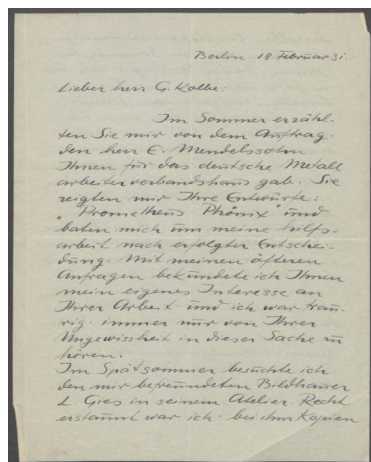 Berlin 18 Februar 31.
Lieber herr G. Kolbe:
Im Sommer erzähl-
ten Sie mir von dem Auftrag
den herr E. Mendelssohn
Ihnen für das deutsche Metall
arbeiterverbandshaus gab. Sie
zeigten mir Ihre Entwürfe:
"Prometheus Phönix" und
baten mich um meine hilfs-
arbeit nach erfolgter Entschei-
dung. Mit meinen öfteren
Anfragen bekundete ich Ihnen
mein eigenes Interesse an
Ihrer Arbeit und ich war trau-
rig immer nur von Ihrer
Ungewissheit in dieser Sache zu
hören.
Im Spätsommer besuchte ich
den mir befreundeten Bildhauer
L. Gies in seinem Atelier. Recht
erstaunt war ich bei ihm Kopien